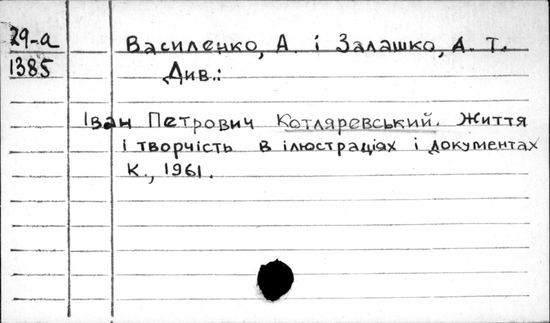 29-а
1385
Василенко, А. і Залашко, А. Т.
Див.:
Іван Петрович Котляревський. Життя
і творчість в ілюстраціях і документах
К., 1961.